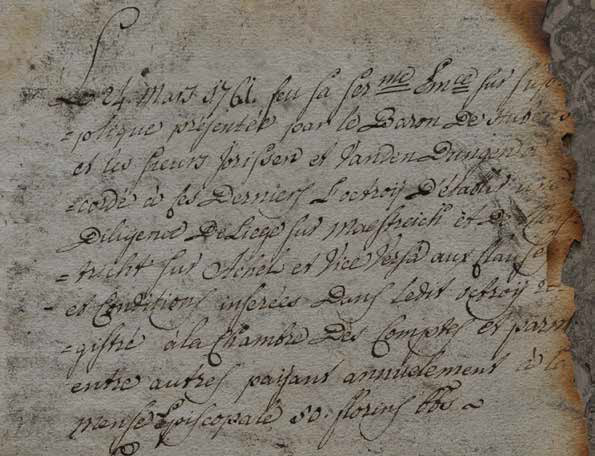 Le 24 Mars 1761. feu sa Ser.me Em.ce sur sup-
=plique présentée par le Baron De
et les Sieurs Jrissen et Vanden Dungen
=cordé à ses Derniers L'octroij D'établir une
Diligence De Liege sur Maestreich et De
=tricht sur Achel et Vice Versa aux Clauses
et Conditions inserées Dans ledit octroij
=gistré a la Chambre Des Comptes et parmi
entre autres paijant annuelement à la
mense Episcopale 50. florins bbs